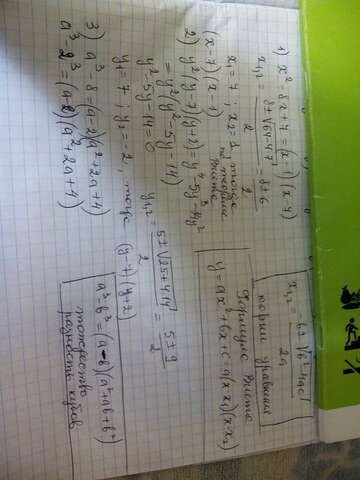 1) x² - 8x + 7 = (x - 1)(x - 7)
x₁,₂ = 8 ± √64 - 4·7 / 2 = 8 ± 6 / 2
x₁ = 7 ; x₂ = 1 тоже по теореме Виета
(x - 7)(x - 1)
2) y²(y - 7)(y + 2) = y⁴ - 5y³ - 14y²
= y²(y² - 5y - 14)
y² - 5y - 14 = 0
y₁,₂ = 5 ± √25 + 4·14 / 2 = 5 ± 9 / 2
y₁ = 7 ; y₂ = -2, тогда (y - 7)(y + 2)
3) a³ - 8 = (a - 2)(a² + 2a + 4)
a³ - 2³ = (a - 2)(a² + 2a + 4)
x₁,₂ = -b ± √b² - 4ac / 2a
корни уравнения
Формула Виета
y = ax² + bx + c = a(x - x₁)(x - x₂)
a³ - b³ = (a - b)(a² + ab + b²)
тождество
разность кубов